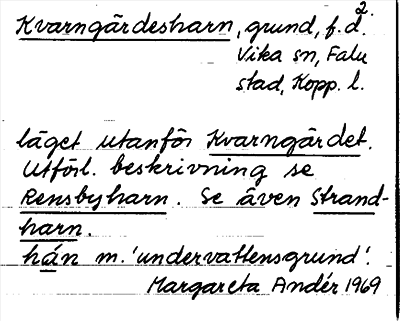 Kvarngärdesharn, grund, f.d. 2.
Vika sn, Falu
stad, Kopp. l.
läget utanför Kvarngärdet.
Utförl. beskrivning se
Rensbyharn. Se även Strand-
harn.
hán m. 'undervattensgrund'.
Margareta Andér 1969